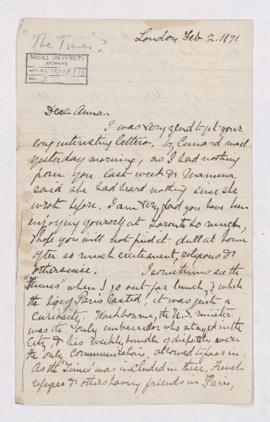 "The Times"?
London Feb. 2. 1871
McGILL UNIVERSITY
ARCHIVES
ACC. NO.
REF.
Dear Anna
I was very glad to get your
long interesting letters by Cunard mail
yesterday morning, as I had nothing
from you last week & Mamma
said she had heard nothing since she
wrote before. I am very glad you have been
enjoying yourself at Toronto so much,
I hope you will not find it dull at home
after so much excitement, religious &
otherwise. I sometimes see the
"Times" when I go out for lunch, & while
the siege of Paris lasted, it was quite a
curiosity. Washburne, the U.S. minister
was the only ambassador who stayed in the
City, & his weekly bundle of dispatches were
the only communications allowed to pass in.
As the "Times" was included in these, French
refugees & others having friends in Paris,